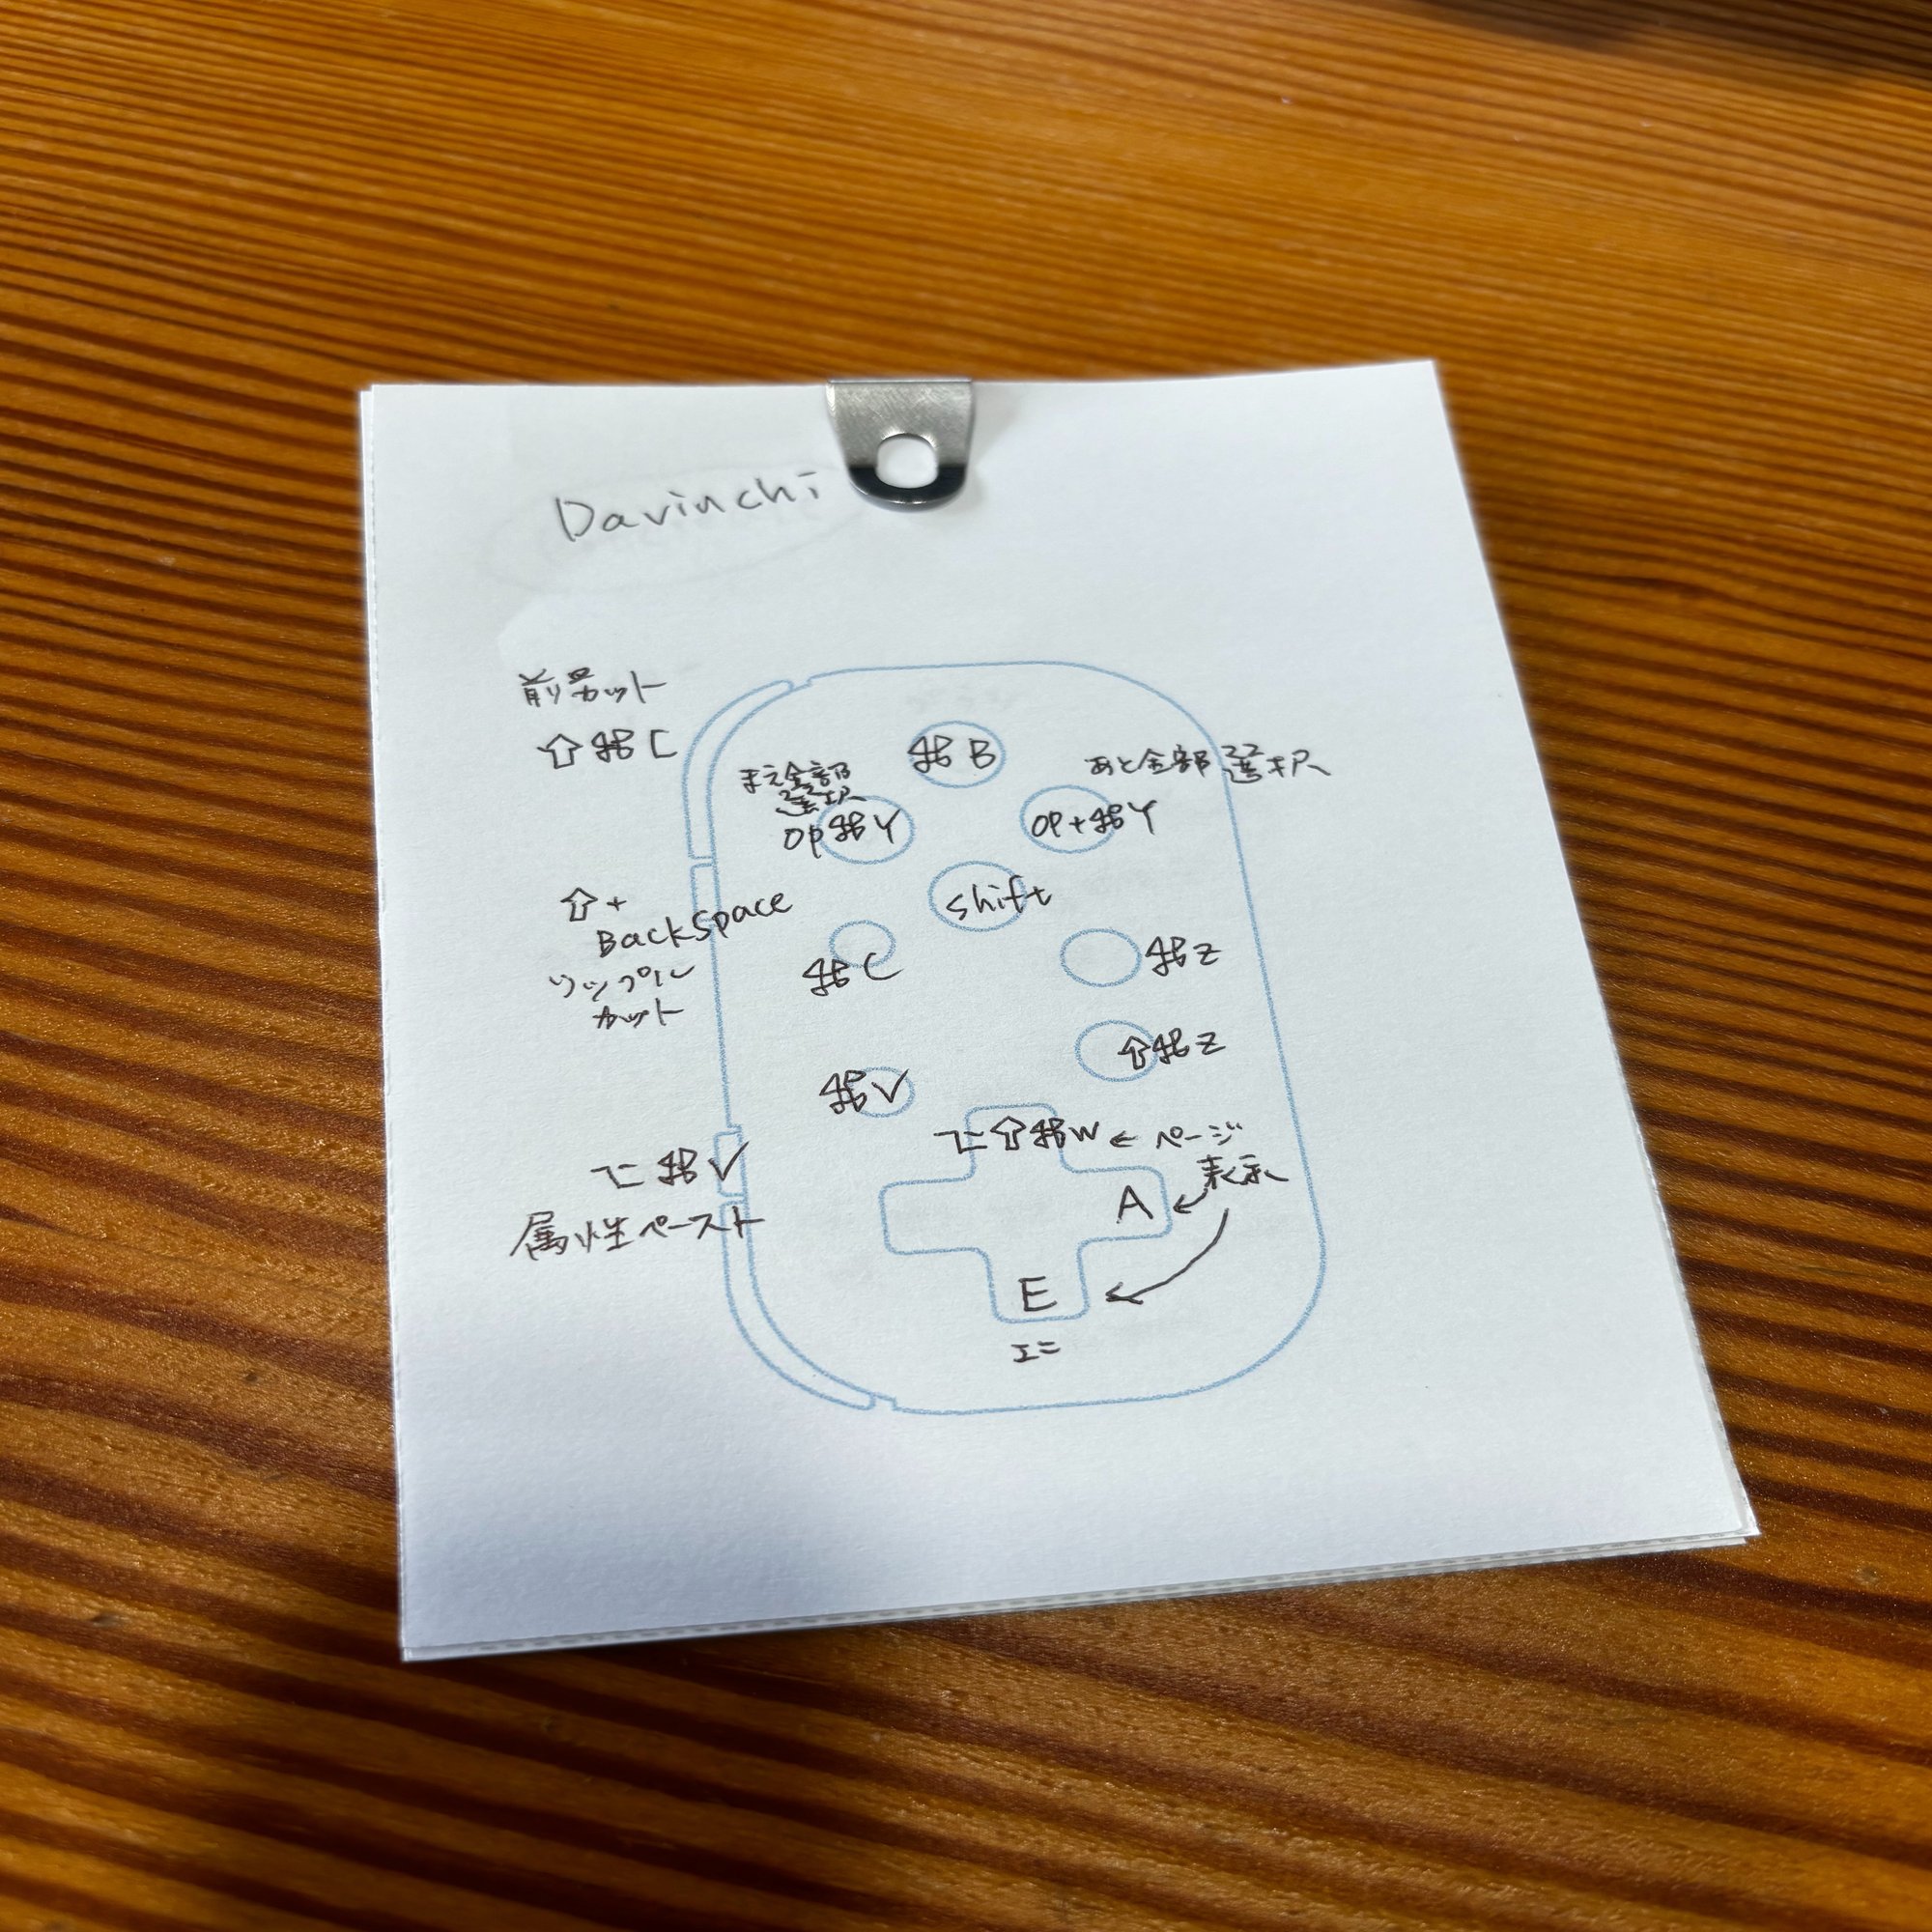 Davinchi
前カット
⇧⌘C
⌘B
まえ全部
選択
op⌘Y
あと全部選択
op+⌘Y
shift
⇧+
Backspace
リップル
カット
⌘C
⌘Z
⇧⌘Z
⌘V
⌥⇧⌘W ← ページ
表示
⌥⌘V
属性ペースト
A ←
E ←